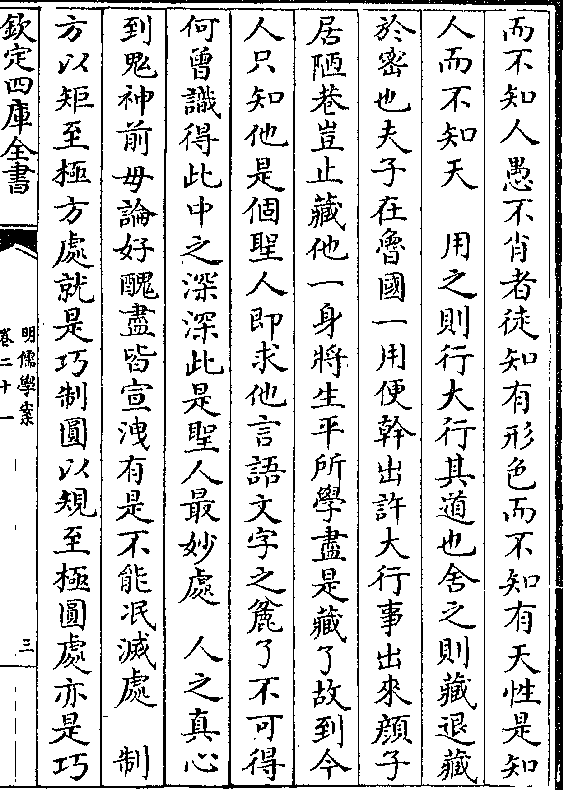 而不知人愚不肖者徒知有形色而不知有天性是知
人而不知天　用之則行大行其道也舍之則藏退藏
於密也夫子在魯國一用便幹出許大行事出來顔子
居陋巷豈止藏他一身將生平所學盡是藏了故到今
人只知他是個聖人即求他言語文字之麄了不可得
何曾識得此中之深深此是聖人最妙處　人之真心
到鬼神前毋論好醜盡皆宣洩有是不能泯滅處　制
方以矩至極方處就是巧制圓以規至極圓處亦是巧
欽定四庫全書
明儒學案
卷二十一
三